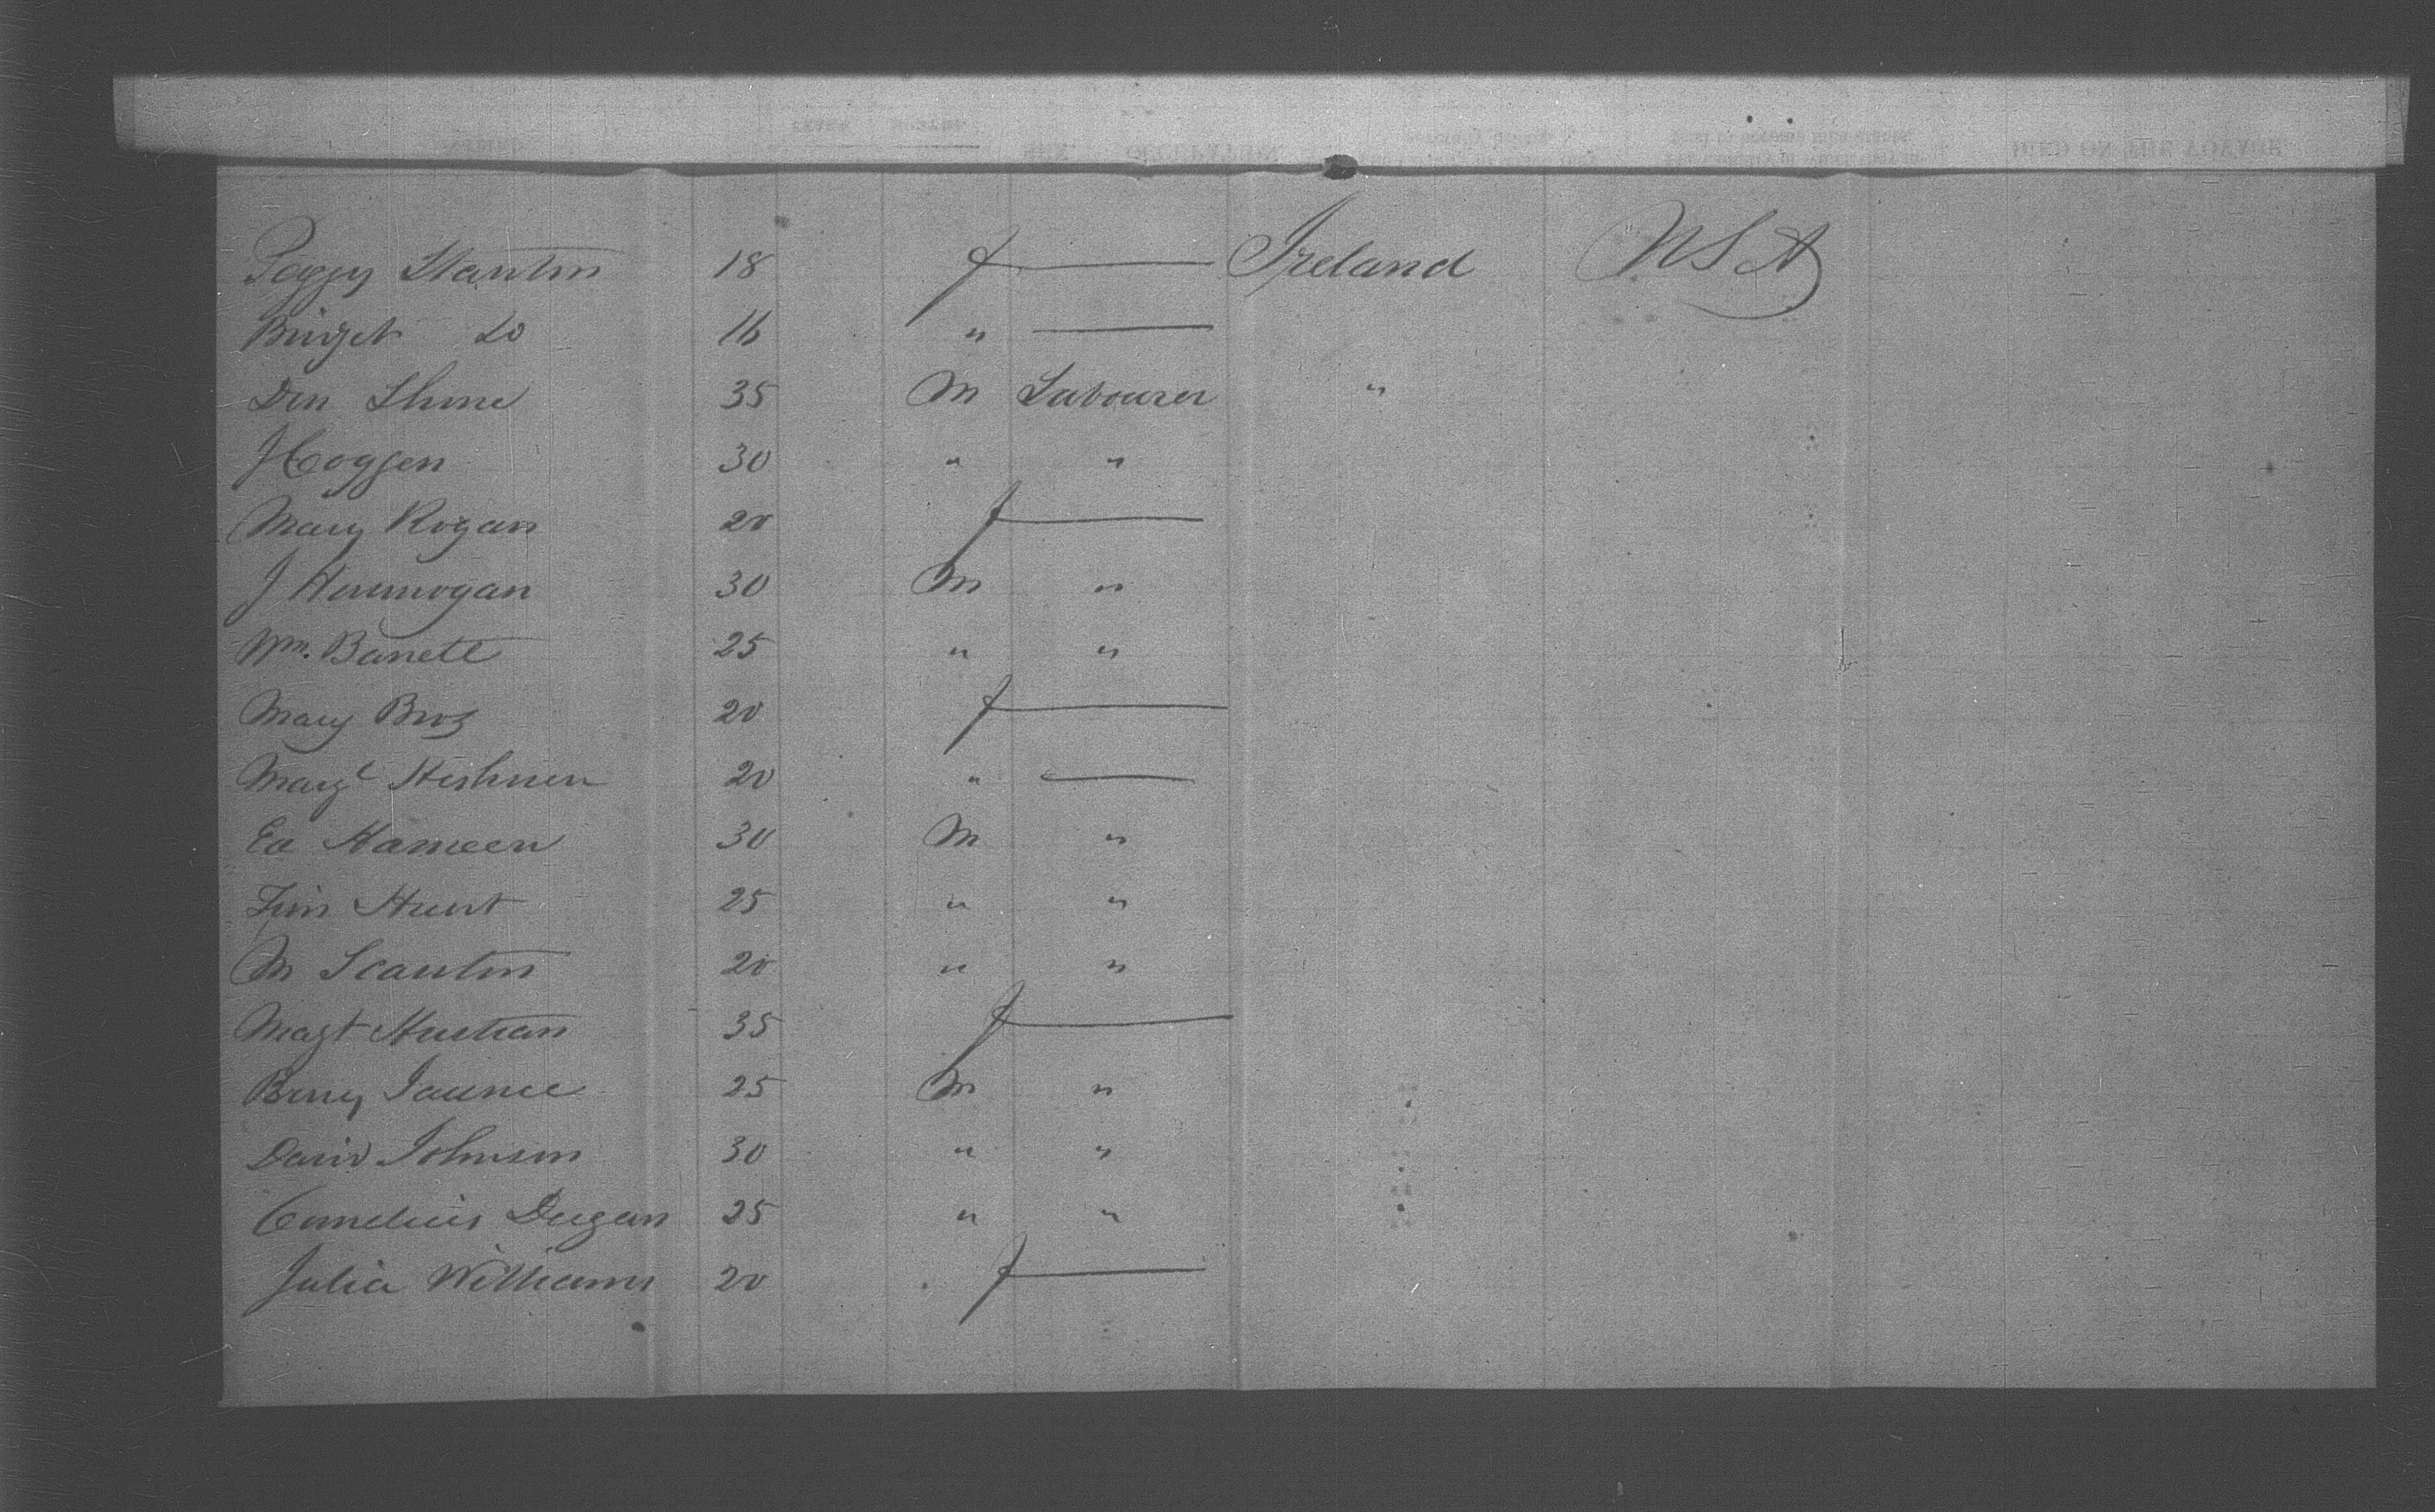 Peggy Stanton 18 f — Ireland USA
Bridget Do 16 " —
Den Shine 35 M Labourer "
J Coggen 30 " "
Mary Rogan 20 f —
J Hermogan 30 M "
Wm. Barrett 25 " "
Mary Bros 20 f —
Margt 20 " —
Ed Hameen 30 M "
Tim Hunt 25 " "
M Scanton 20 " "
Magt 35 f —
Berry Jaunce 25 M "
David Johnson 30 " "
Cornelius Dugan 25 " "
Julia Williams 20 f —